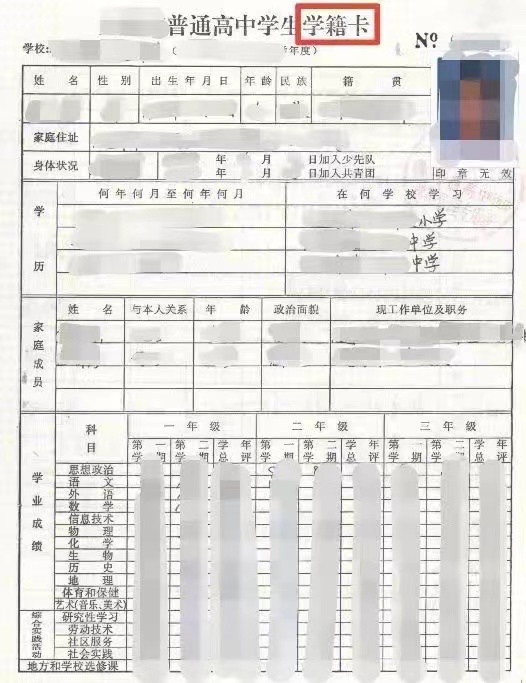 普通高中学生学籍卡
学校: ( 年度) №
姓 名 性 别 出 生 年 月 日 年 龄 民 族 籍 贯
家庭住址
身体状况 年 月 日加入少先队
年 月 日加入共青团
印 章 无 效
学 历 何 年 何 月 至 何 年 何 月 在 何 学 校 学 习
小学
中学
中学
家庭成员 姓 名 与本人关系 年 龄 政治面貌 现工作单位及职务
学业成绩 科目 一 年 级 二 年 级 三 年 级
第一学期 第二学期 学年总评 第一学期 第二学期 学年总评 第一学期 第二学期 学年总评
思想政治
语 文
外 语
数 学
信息技术
物 理
化 学
生 物
历 史
地 理
体育和保健
艺术(音乐、美术)
综合实践活动 研究性学习
劳动技术
社区服务
社会实践
地方和学校选修课